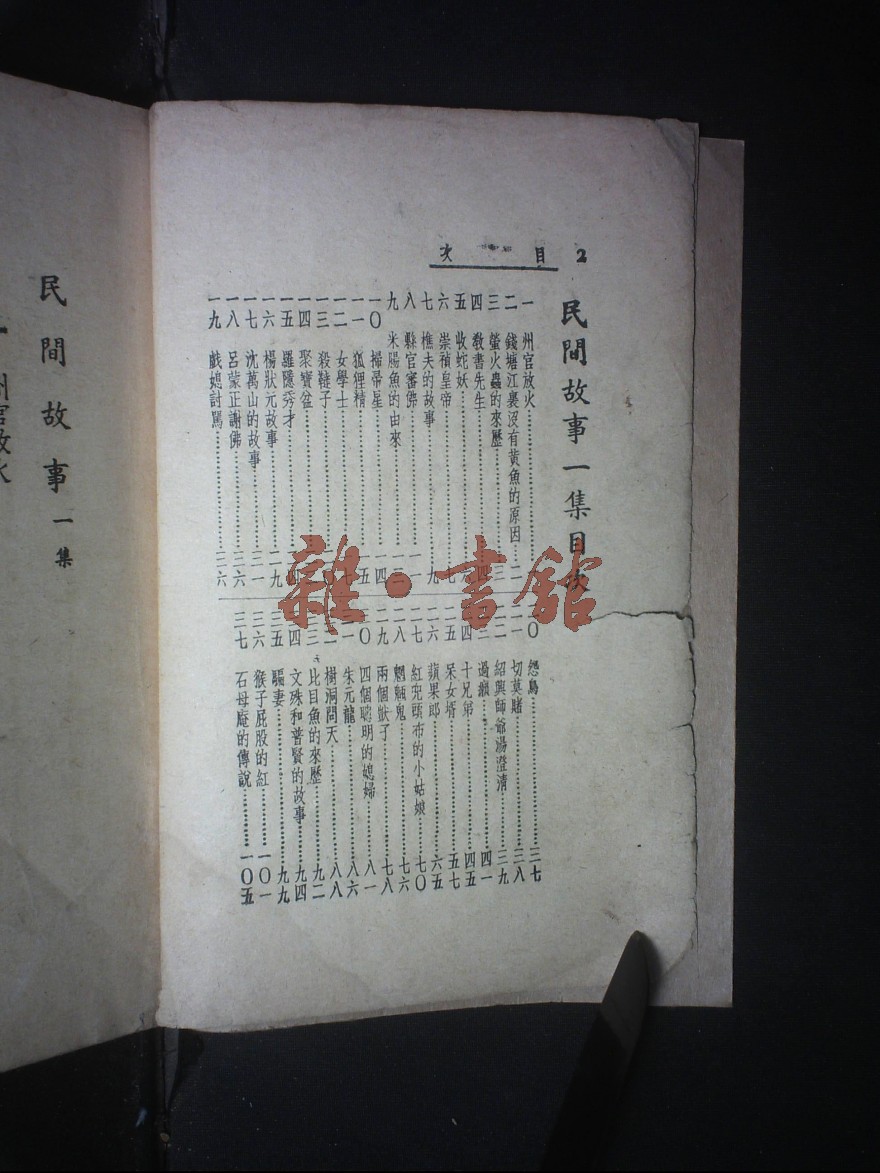 2 目次
民間故事一集目次
一 州官放火
二 錢塘江裏沒有黃魚的原因 二
三 螢火蟲的來歷 三
四 教書先生 四
五 收蛇妖 六
六 崇禎皇帝 七
七 樵夫的故事 九
八 縣官審佛 一一
九 米腸魚的由來 一三
一〇 掃帚星 一四
一一 狐狸精 一五
一二 女學士
一三 殺韃子
一四 聚寶盆
一五 羅隱秀才
一六 楊狀元故事 二九
一七 沈萬山的故事 三一
一八 呂蒙正謝佛
一九 戲媳討罵
二〇 怨鳥 三七
二一 切莫賭 三八
二二 紹興師爺湯澄清 三九
二三 過癩 四一
二四 十兄弟 四五
二五 呆女壻 五七
二六 蘋果郎 六五
二七 紅兜頭布的小姑娘 七〇
二八 魍魎鬼 七六
二九 兩個獃子 七八
三〇 四個聰明的媳婦 八一
三一 朱元龍 八六
三二 樹洞問天 八八
三三 比目魚的來歷 九二
三四 文殊和普賢的故事 九四
三五 騙妻 九九
三六 猴子屁股的紅 一〇一
三七 石母庵的傳說 一〇五
民間故事一集
一 州官放火
雜·書館